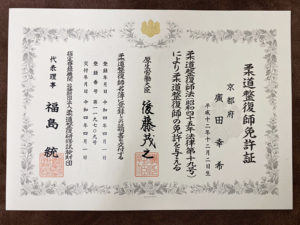 柔道整復師免許証
京都府
廣田幸希
平成十二年十二月二日生
柔道整復師法(昭和四十五年法律第十九号)
により柔道整復師の免許を与える
厚生労働大臣 後藤茂之
柔道整復師名簿に登録したので本証書を交付する
登録年月日 令和四年四月一日
登録番号 第一九七〇九号
交付年月日 令和四年四月一日
指定登録機関 公益財団法人柔道整復研修試験財団
代表理事 福島統